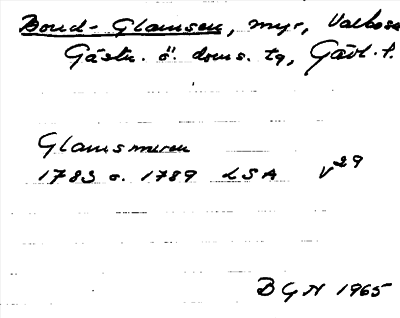 Bond-Glamsen, myr, Valbo sn
Gästr. ö. doms. tg, Gävl. l.
Glamsmuren
1783 o. 1789 LSA V29
BGN 1965